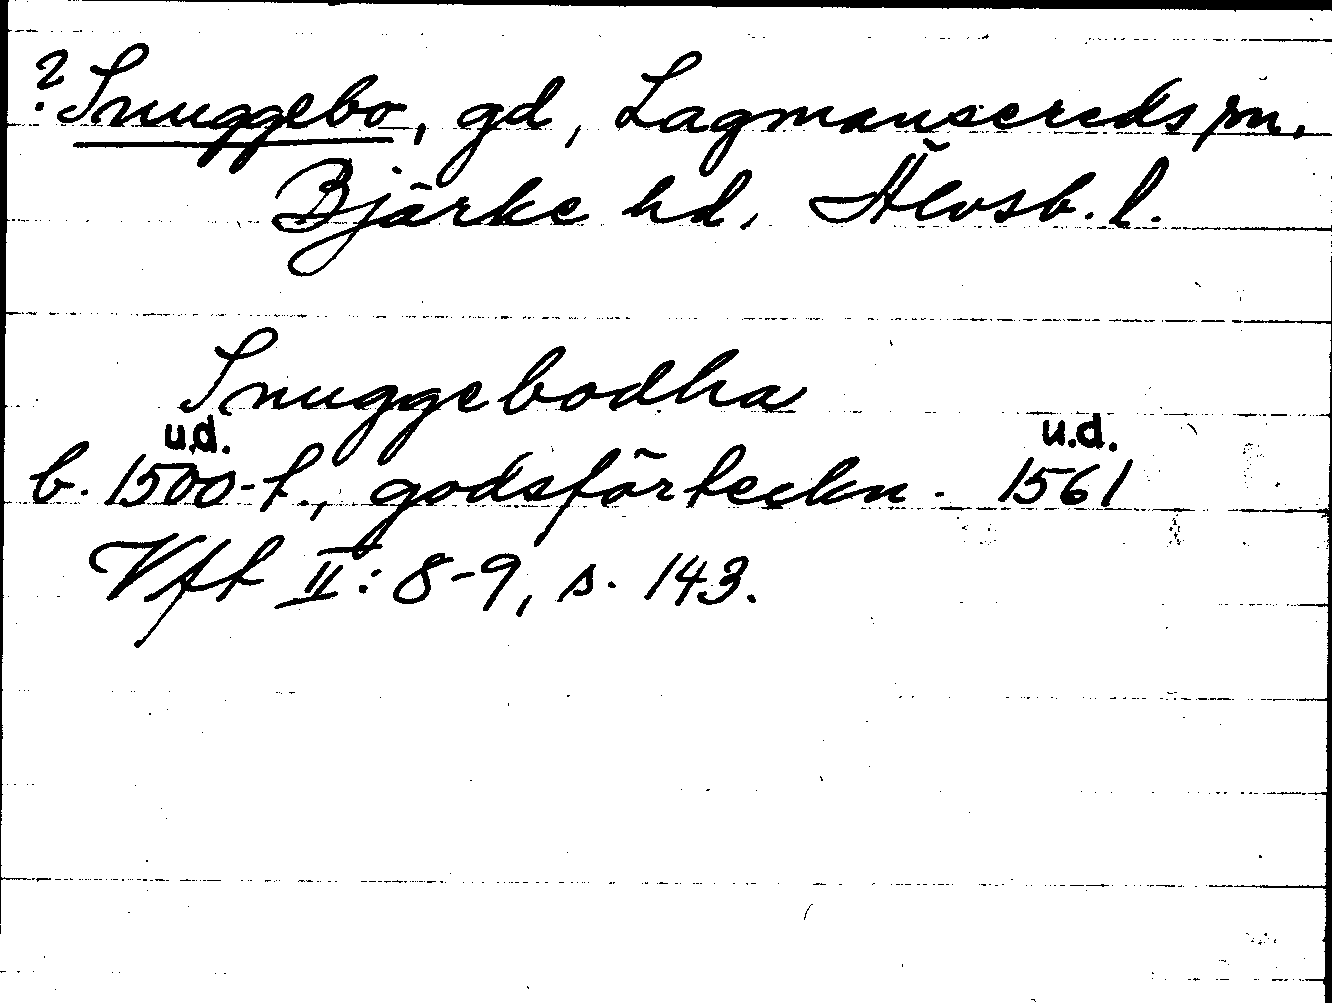 ? Snuggebo, gd, Lagmansereds sn.
Bjärke hd, Älvsb. l.
Snuggebodha
u.d. u.d.
b. 1500-t., godsförteckn. 1561
Vft II: 8-9, s. 143.